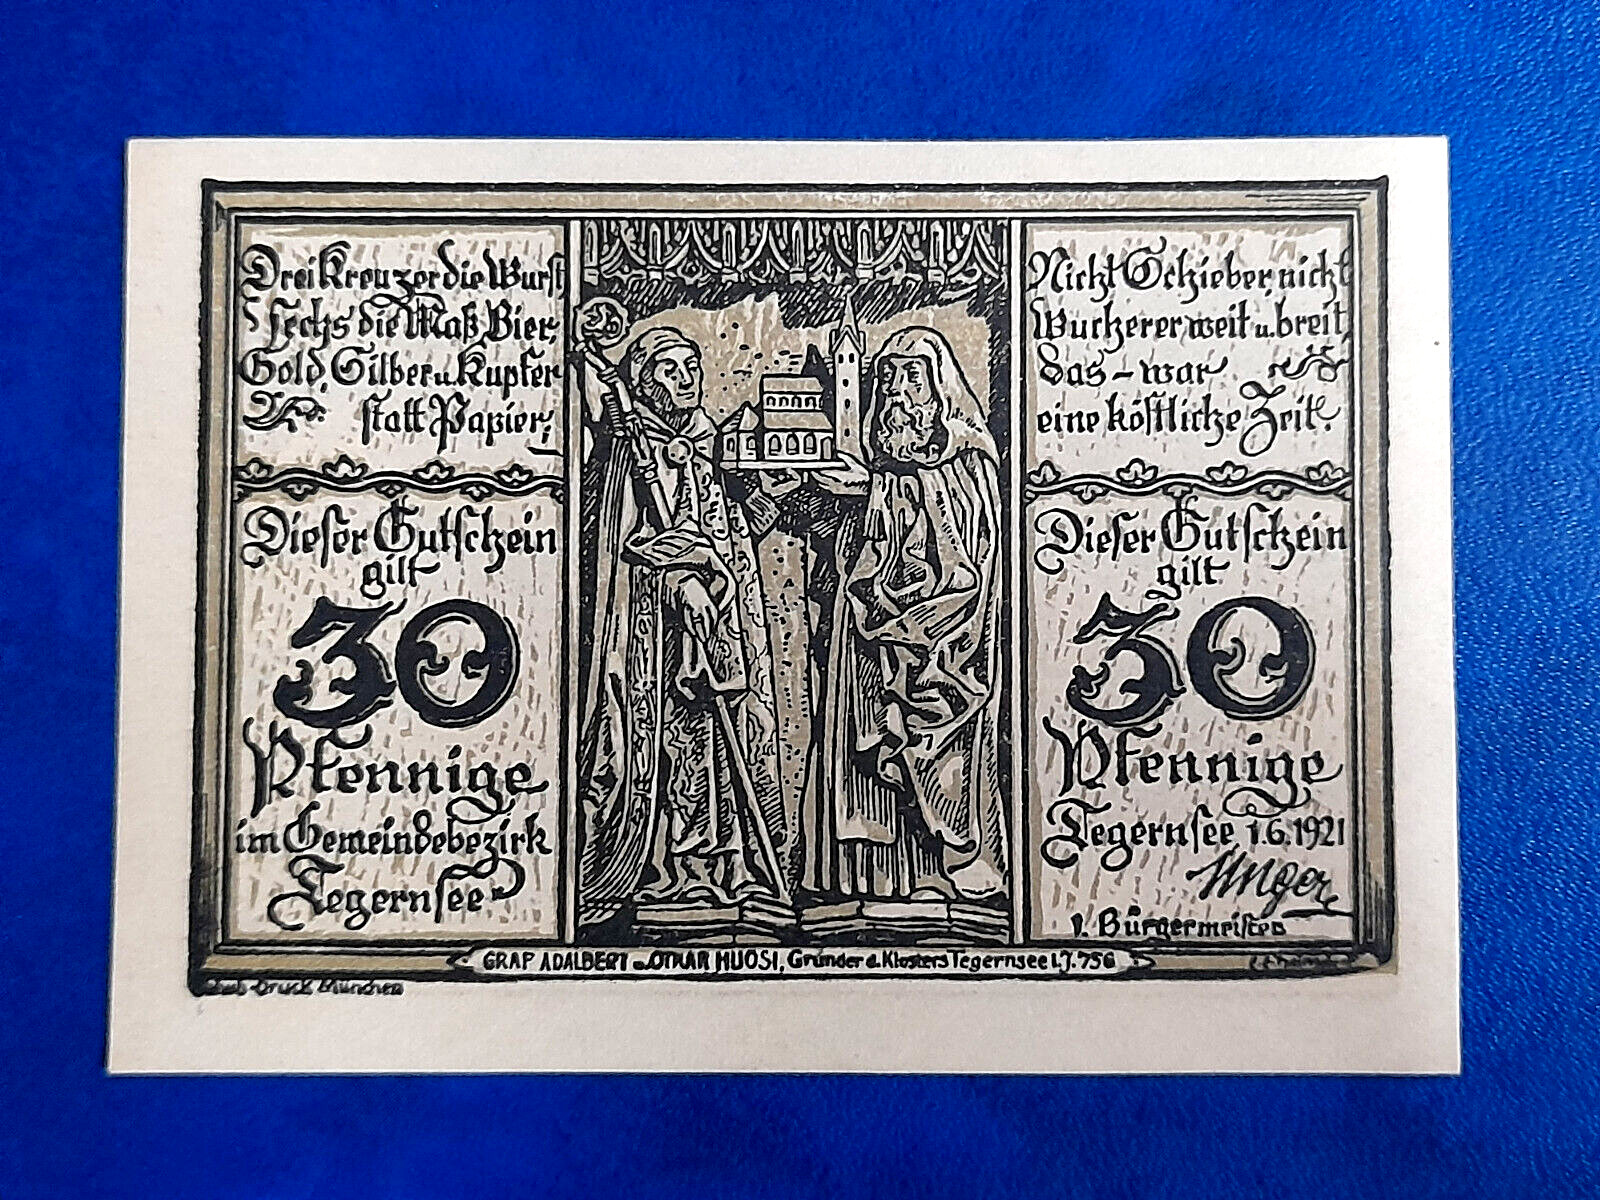 Drei Kreuzer die Wurst
sechs die Maß Bier,
Gold, Silber u. Kupfer
statt Papier;
Dieser Gutschein
gilt
30
Pfennige
im Gemeindebezirk
Tegernsee
Nicht Schieber, nicht
Wucherer weit u. breit,
das – war
eine köstliche Zeit.
Dieser Gutschein
gilt
30
Pfennige
Tegernsee 1.6.1921
Unger
1. Bürgermeister
GRAF ADALBERT u. OTKAR HUOSI, Gründer d. Klosters Tegernsee i. J. 756
Druck München